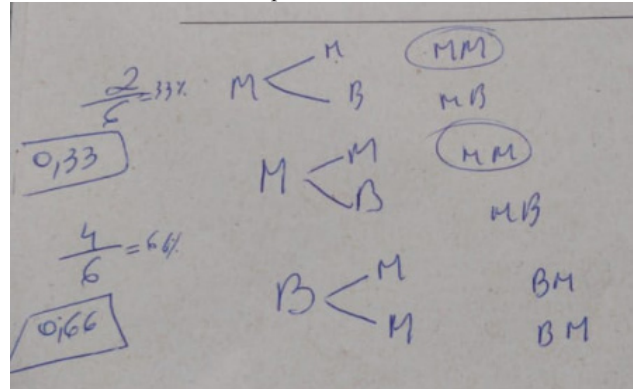 2/6 = 33%
0,33
4/6 = 66%
0,66
M M MM
B MB
M M MM
B MB
B M BM
M BM